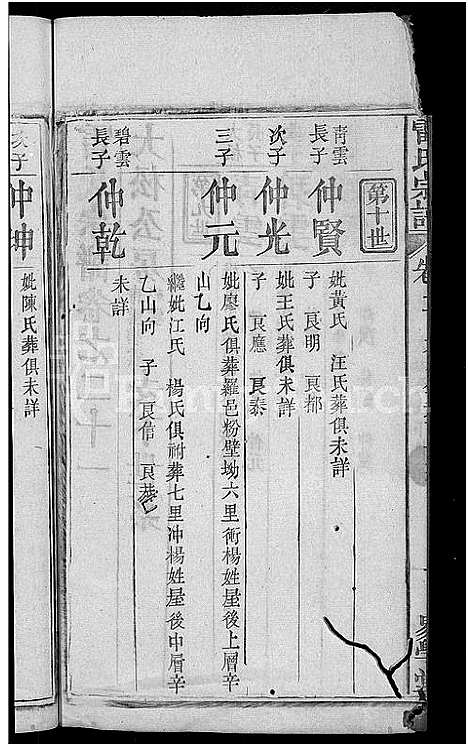 第十世
青雲長子
仲賢
妣黃氏 汪氏葬俱未詳
子 良明 良都
次子
仲光
妣王氏葬俱未詳
子 良應 良泰
三子
仲元
妣廖氏俱葬羅邑粉壁坳六里衖楊姓屋後上層辛
山乙向
繼妣江氏 楊氏俱祔葬七里沖楊姓屋後中層辛
乙山向 子 良信
碧雲長子
仲乾
未詳
次子
仲坤
妣陳氏葬俱未詳